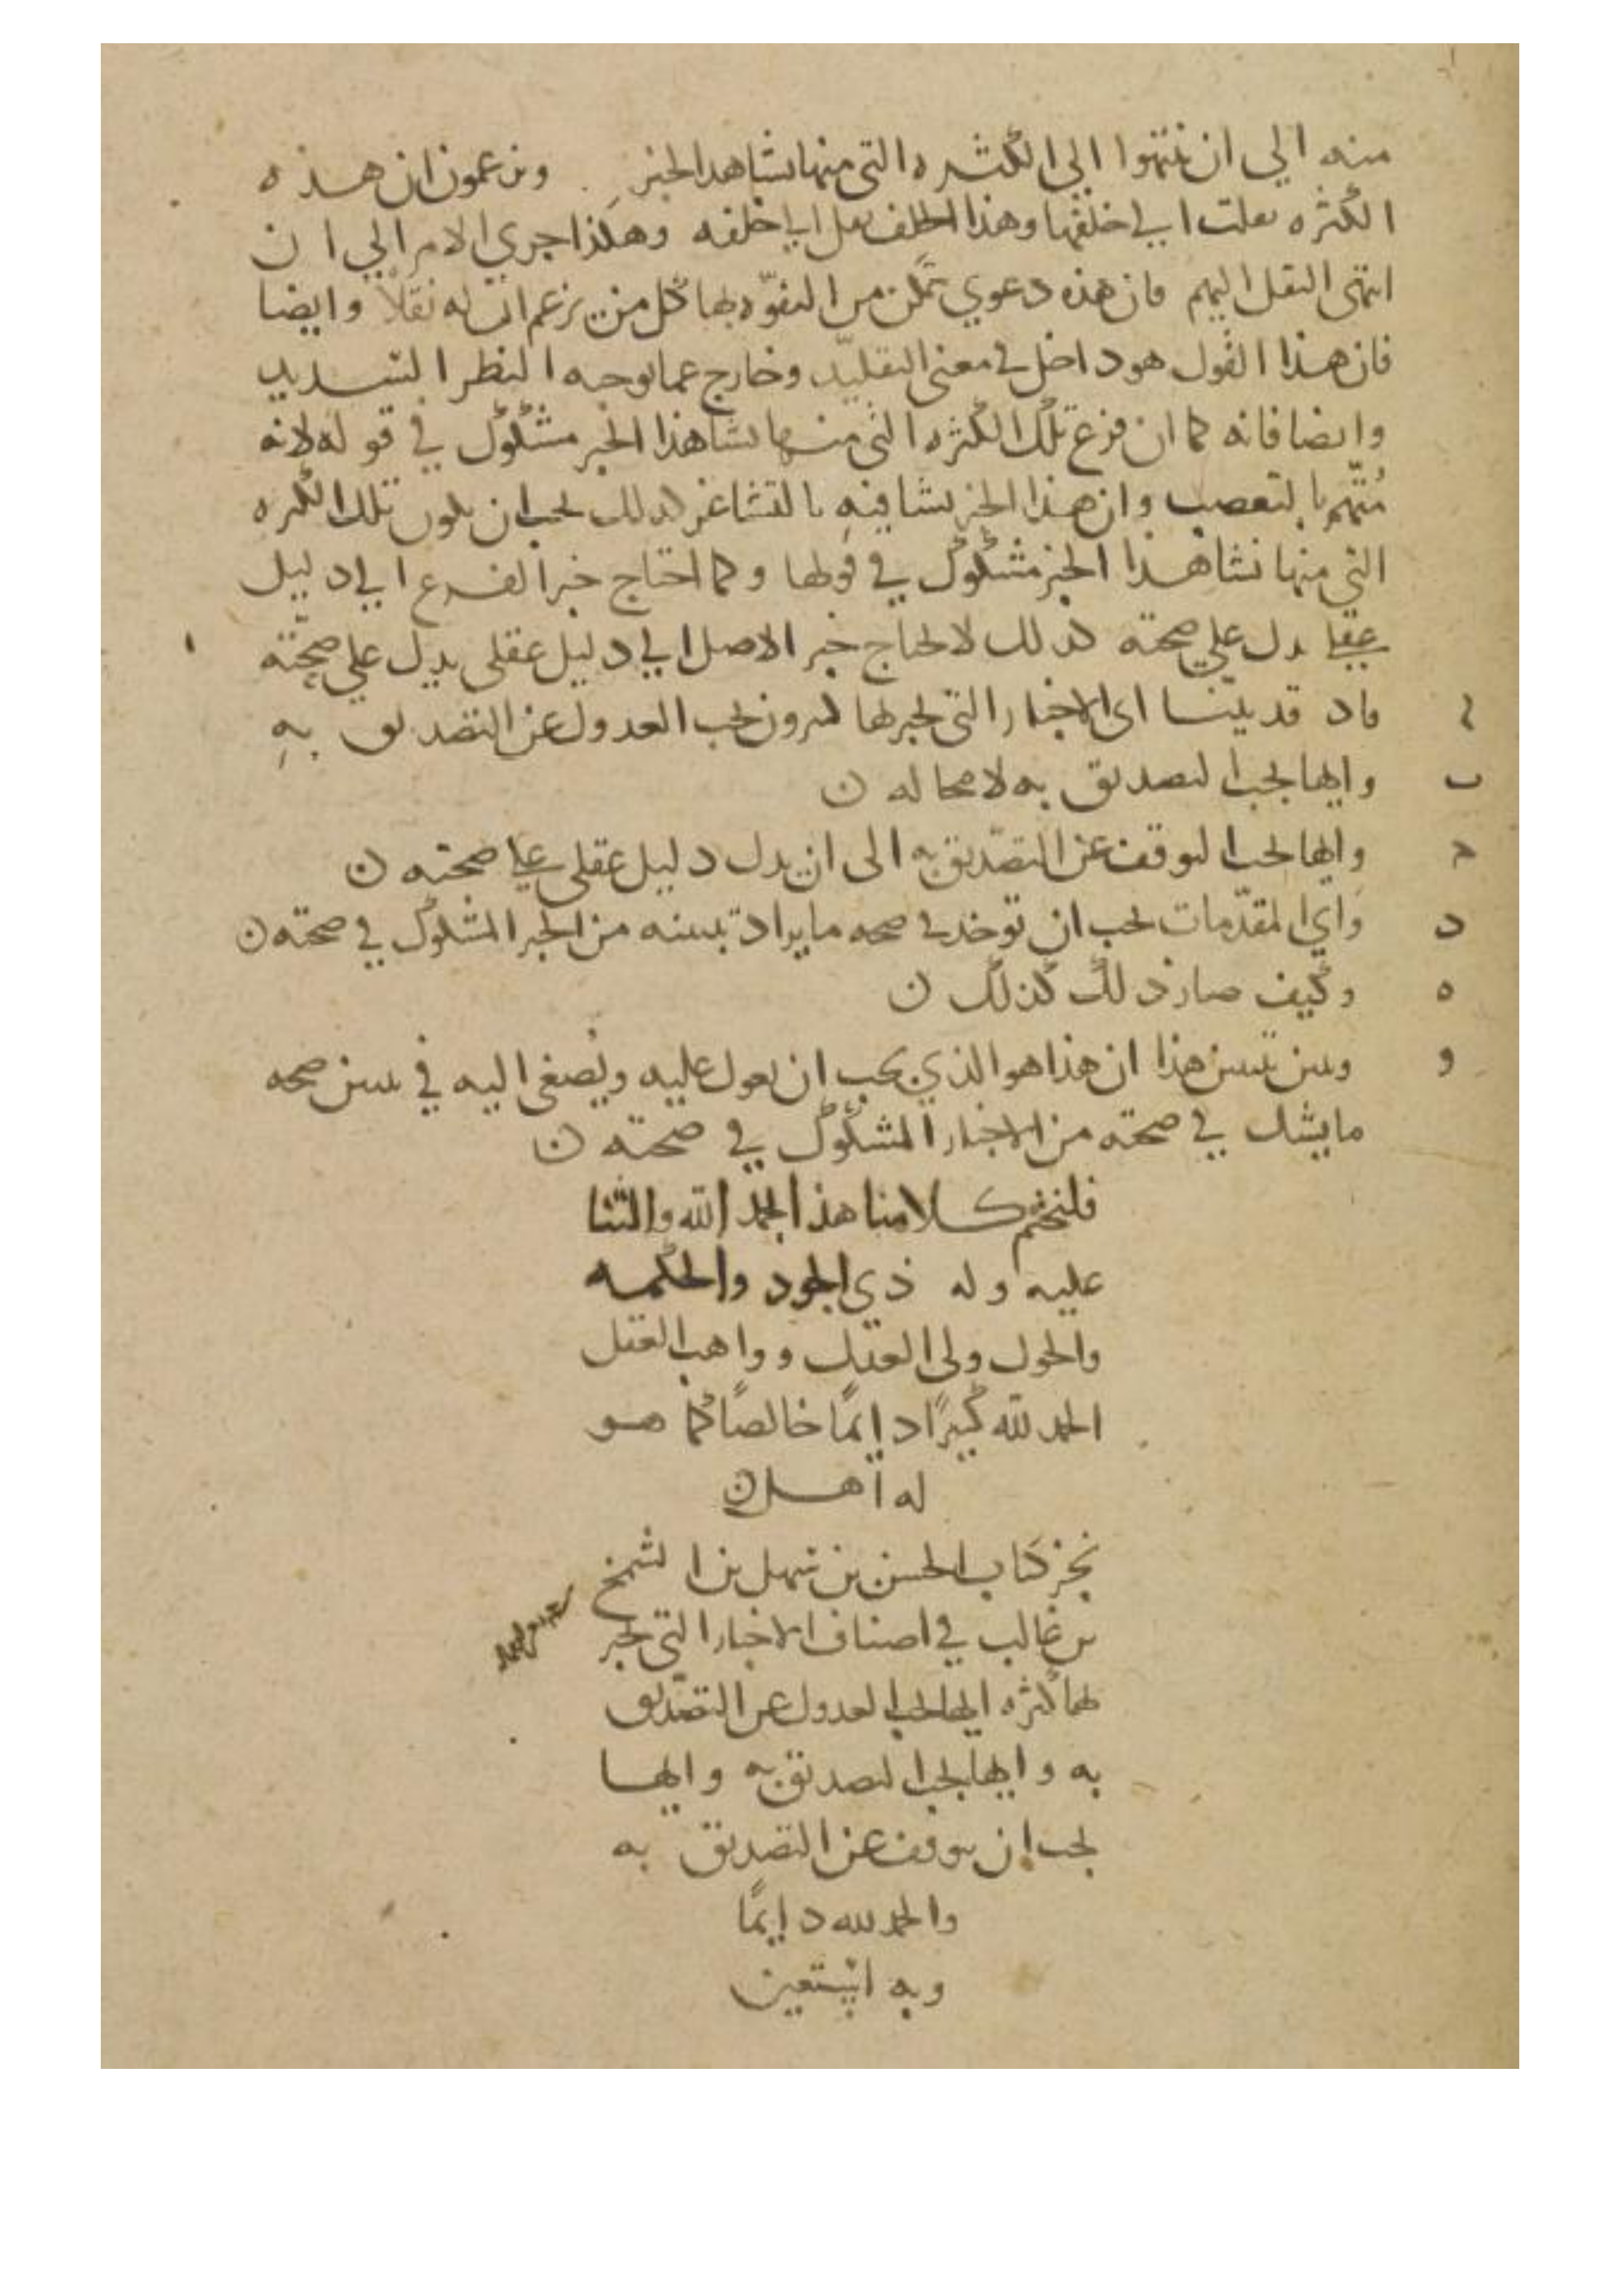 منه الي ان ينتهوا الي الكثره التي منها نشا هذا الخبر ويزعمون ان هذه
الكثره نقلت الي خلفها وهذا الخلف نقل الي خلفه وهكذا جري الامر الي ان
انتهى النقل اليهم فان هذه دعوي تمكن من التفوّه بها كل من يزعم ان له نقلاً وايضا
فان هذا القول هو داخل في معنى التقليد وخارج عما يوجبه النظر السديد
وايضا فانه كما ان فرع تلك الكثره التي منها نشا هذا الخبر مشكوك في قوله لانه
مُتّهم بالتعصب وان هذا الخبر نشا فيه كذلك يجب ان يكون تلك الكثره
التي منها نشا هذا الخبر مشكوك في قولها وكما احتاج خبر الفرع الي دليل
عقلي يدل علي صحته كذلك يحتاج خبر الاصل الي دليل عقلي يدل علي صحّته
فاذ قد بيّنا اي الاخبار التي يخبر بها كثيرون يجب العدول عن التصديق بهِ
ب وايها يجب التصديق به لا محاله ن
ج وايها يجب التوقف عن التصديق به الى ان يدل دليل عقلي علي صحته ن
د واي المقدّمات يجب ان توخذ في صحه ما يراد تبينه من الخبر المشكوك في صحته ن
ه وكيف صار ذلك كذلك ن
و وبين تبين هذا ان هذا هو الذي يجب ان يعول عليه ويُصغى اليه في تبين صحه
ما يشك في صحته من الاخبار المشكوك في صحته ن
فلنختم كلامنا هذا بحمد الله والثنا
عليه وله ذي الجود والحكمه
والحول ولى العدل وواهب العقل
الحمد لله كثيرًا دايمًا خالصًا كما هو
له اهل ن
نجز كتاب الحسن بن سهل بن السمح
بن غالب في اصناف الاخبار التي يخبر
بها كثره ايها يجب العدول عن التصديق
به وايها يجب التصديق به وايها
يجب ان يتوقف عن التصديق به
والحمد لله دايمًا
وبه استعين